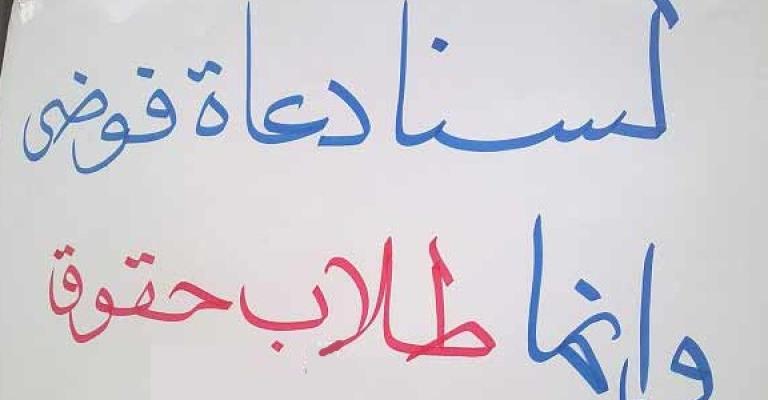 لسنا دعاة فوضى
وإنما طلاب حقوق